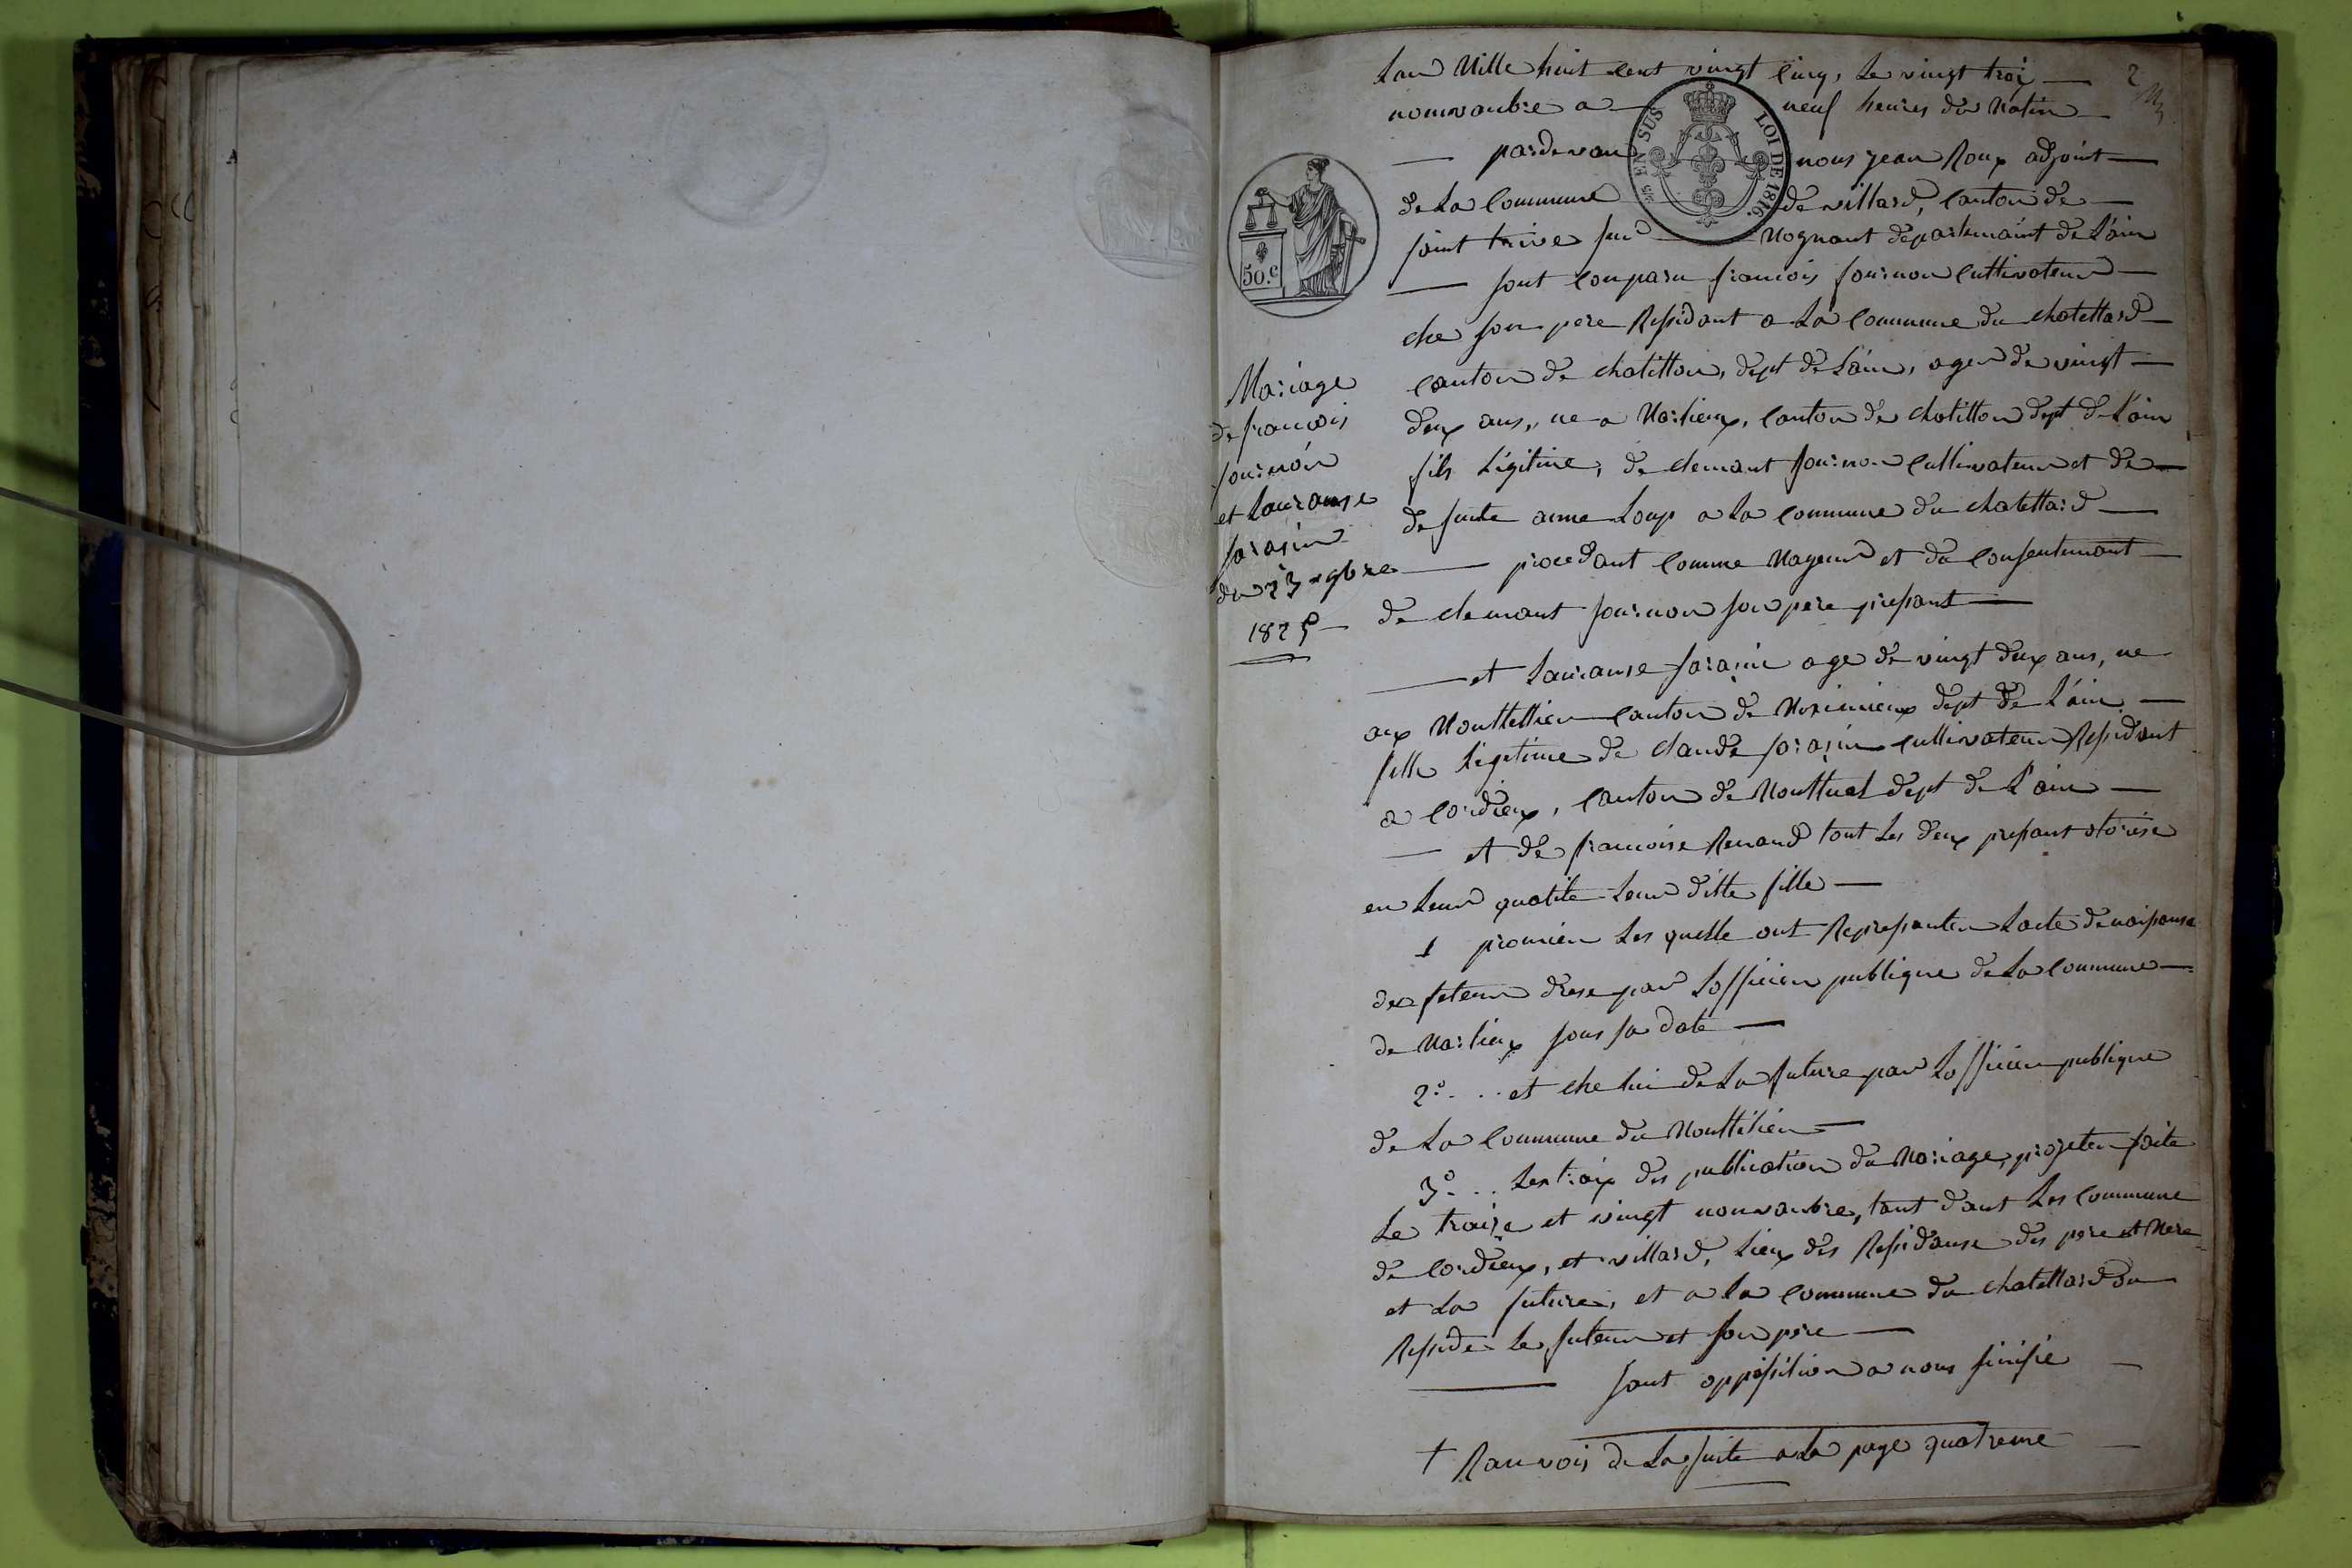 2
Lan Mille huit cent vingt cinq, Le vingt troi
nouvanbre a neuf heures du Matin
pardevan nous jean Roux adjoint
de La Commune de villard, Canton de
saint trive sur Mognant departemaint de L'ain
sont conparu francois fournon Cultivateur
che son pere Residant a La Commune du chatellard
Canton de chatillon, dept de L'ain, ager de vingt
deux ans, ne a Marlieux, Canton de chatillon dept de L'ain
fils Légitime, de clemant fournon Cultivateur et de
de funte anne Loup a La Commune du chatellard
procedant Comme Mageur et du Consentemant
de clemant fournon son pere presant
et Lauranse sarasin age de vingt deux ans, ne
aux Monttellier Canton de Meximieux dept de L'ain
fille Légitime de claude sarasin cultivateur Residant
a Cordieux, Canton de Monttuel dept de L'ain
et de francoise Renand tout Les deux presant otorise
en Leur qualité Leur ditte fille
1 promier Les quelle ont Represanter Lacte de naissanse
de futeur drese par Lofficier publique de La Commune
de Marlieux sous sa date
2º... et che lui de La future par Lofficier publique
de La Commune du Monttelier
3º... Les troix des publication du Mariage projeter faite
Le traize et vingt nouvanbre, tant dant Les Commune
de Cordieux, et villard, Lieux des Residanse des pere et Mere
et La future, et a La commune du chatellard ou
Reside Le futeur et son pere
sant opposition a nous sinifie
† Ranvois de La suite a La page quatreme
Mariage
de francois
fournon
et Lauranse
sarasin
du 23 9bre
1825
50.c
EN SUS
LOI DE 1816.